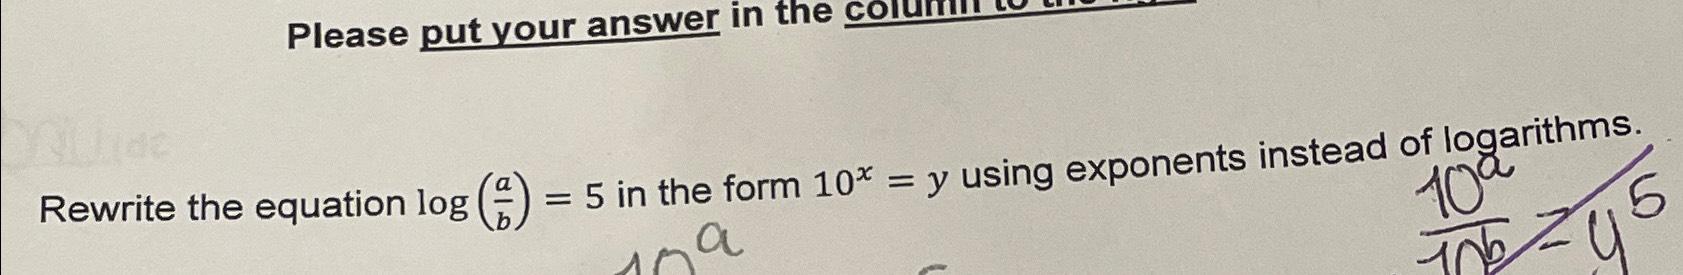 Please put your answer in the column to the
Rewrite the equation log (a/b) = 5 in the form 10^x = y using exponents instead of logarithms.
10^a/10^b = y^5
10^a